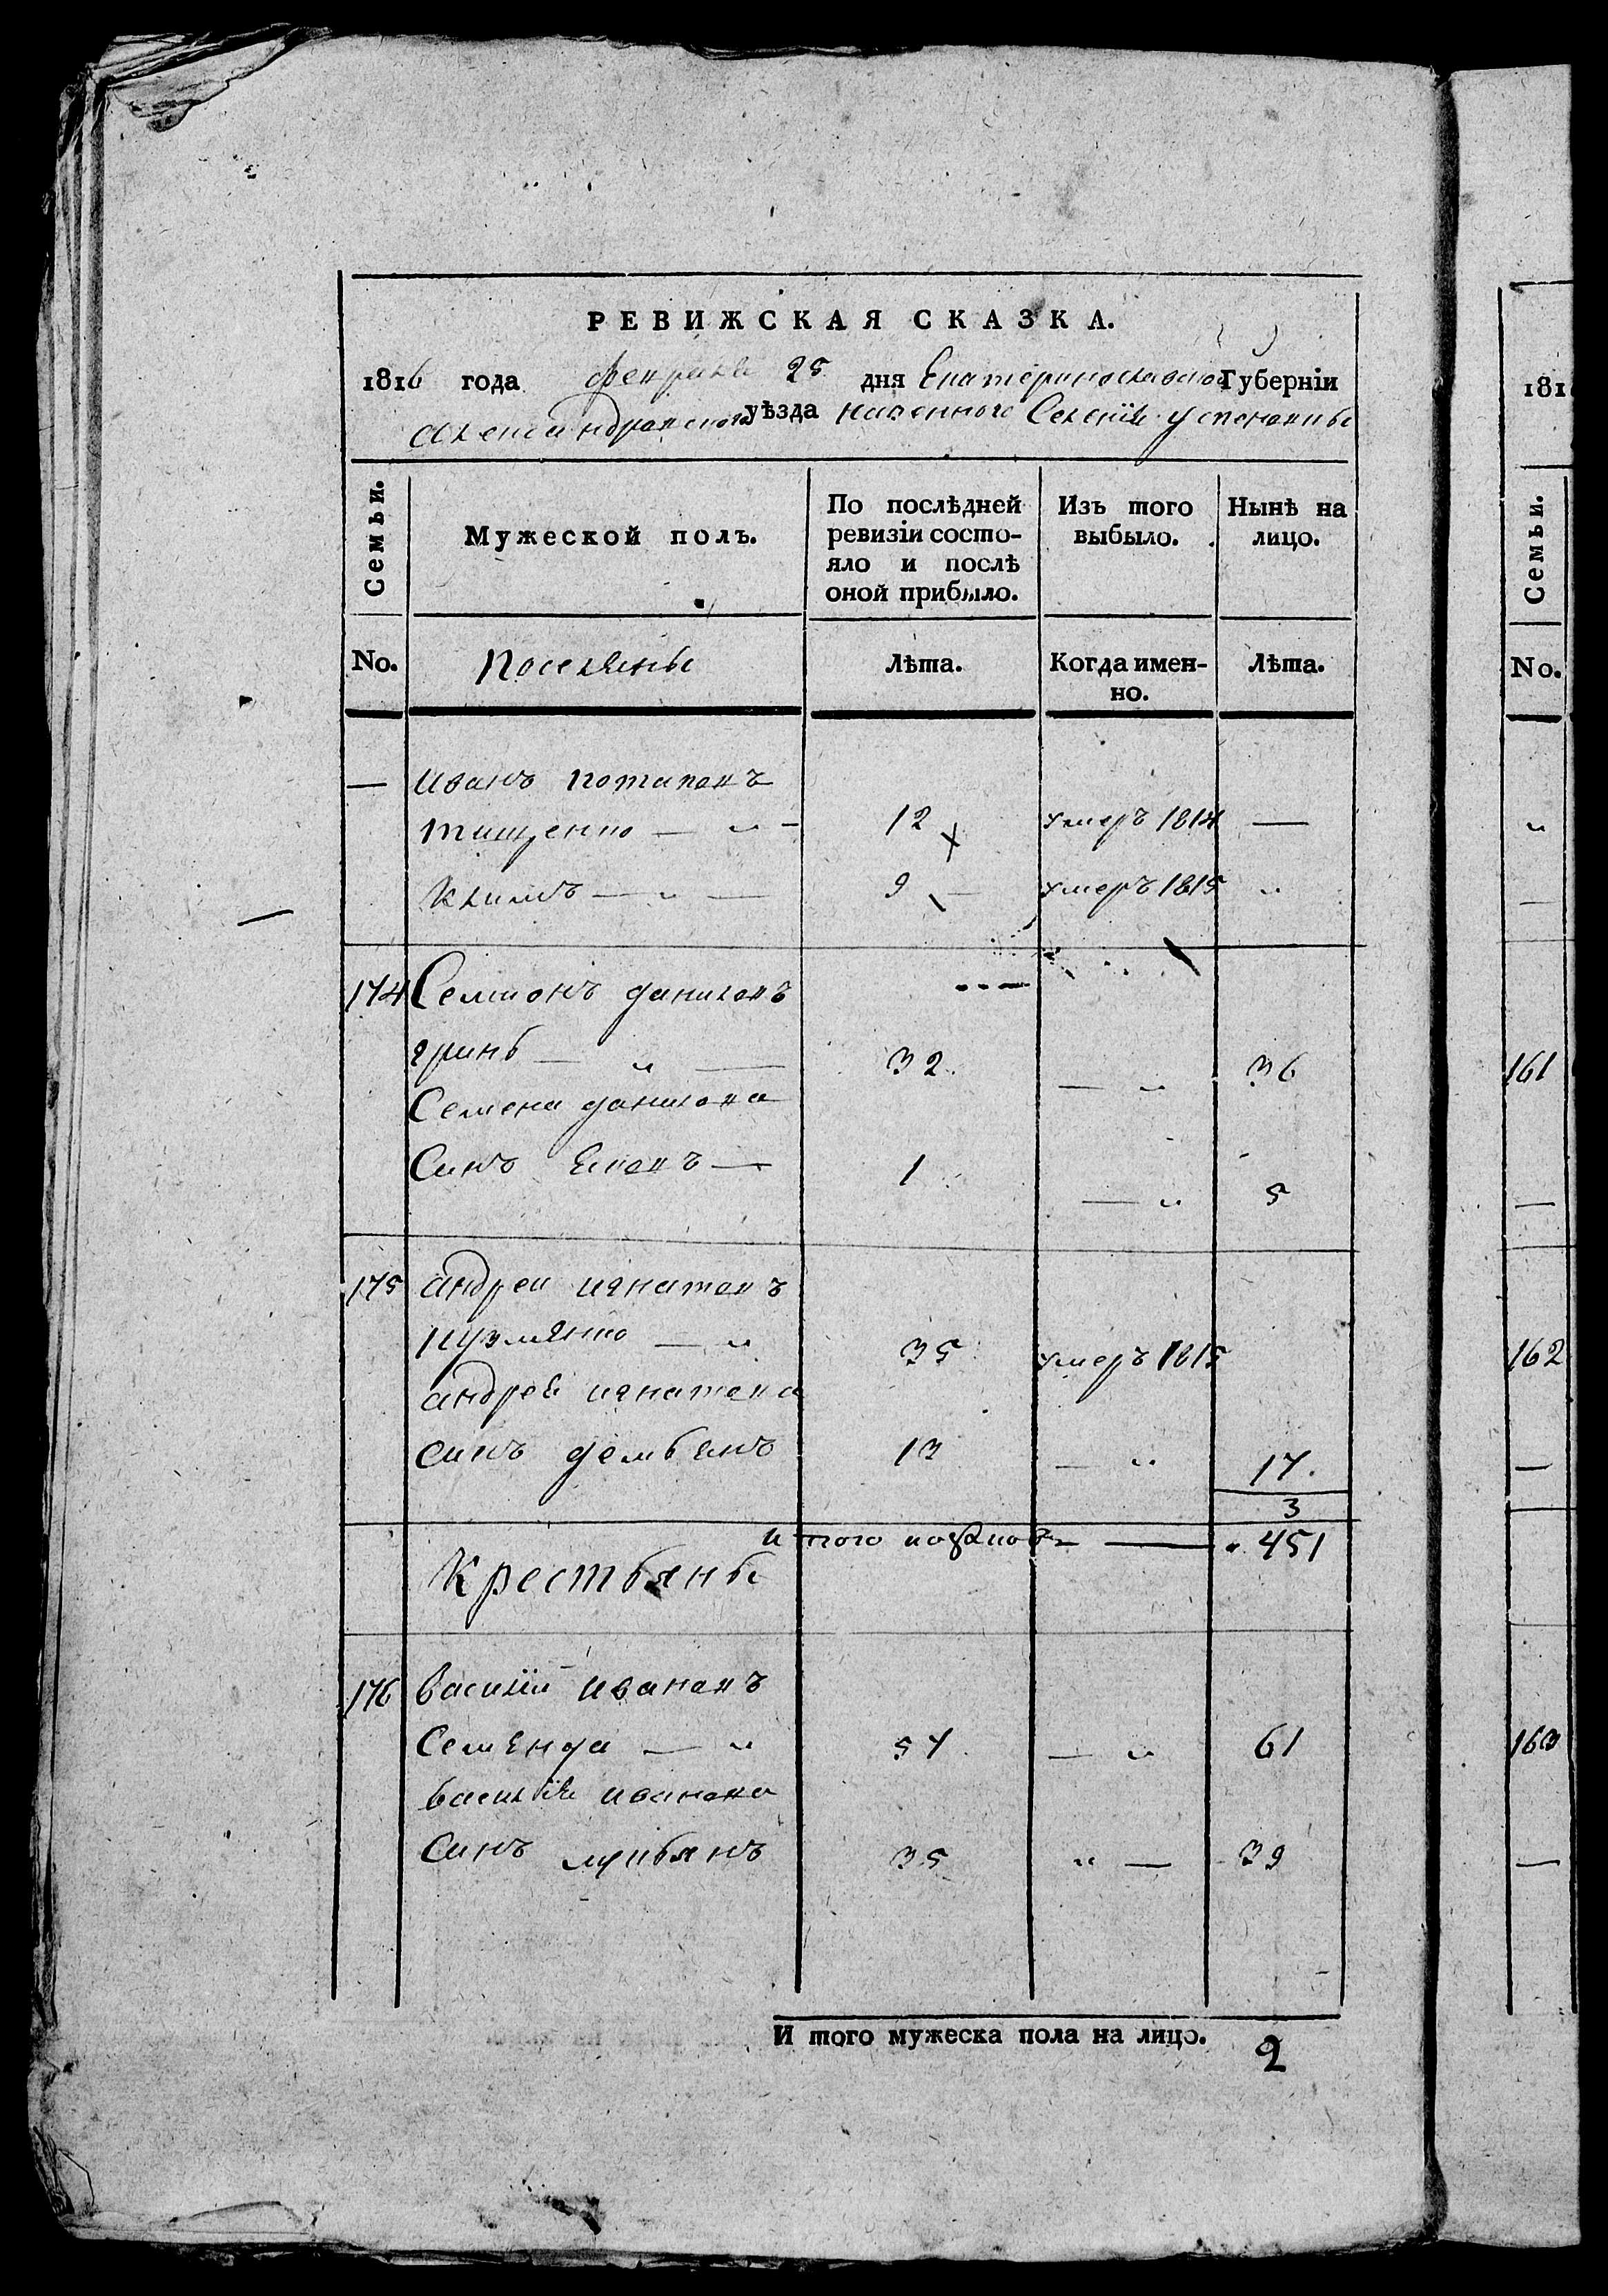 РЕВИЖСКАЯ СКАЗКА.
1816 года февраля 25 дня Екатеринославской Губерніи
Александровского уѣзда казенного Селенія Успеновки
Семьи.
Мужеской полъ.
По послѣдней ревизіи состо-
яло и послѣ
оной прибыло.
Изъ того
выбыло.
Нынѣ на
лицо.
No.
Поселяны
Лѣта.
Когда имен-
но.
Лѣта.
— Иванъ потаповъ
тищенко — „ — 12 умеръ 1814 —
Климъ — „ — 9 умеръ 1815 „
174 Семионъ даниловъ
гринь — „ — 32. — „ 36
Семена данилова
Синъ Яковъ — 1 — „ 5
175 андреи игнатовъ
кузменко — „ 35 умеръ 1815
андрея игнатова
синъ демьянъ 13 — „ 17.
3
И того — 451
Крестьяны
176 василій ивановъ
Семенда — „ 57 — „ 61
василія иванова
Синъ лукьянъ 35 „ — 39
И того мужеска пола на лицо. 2
181
Семьи.
No.
„
—
161
—
162
—
163
—